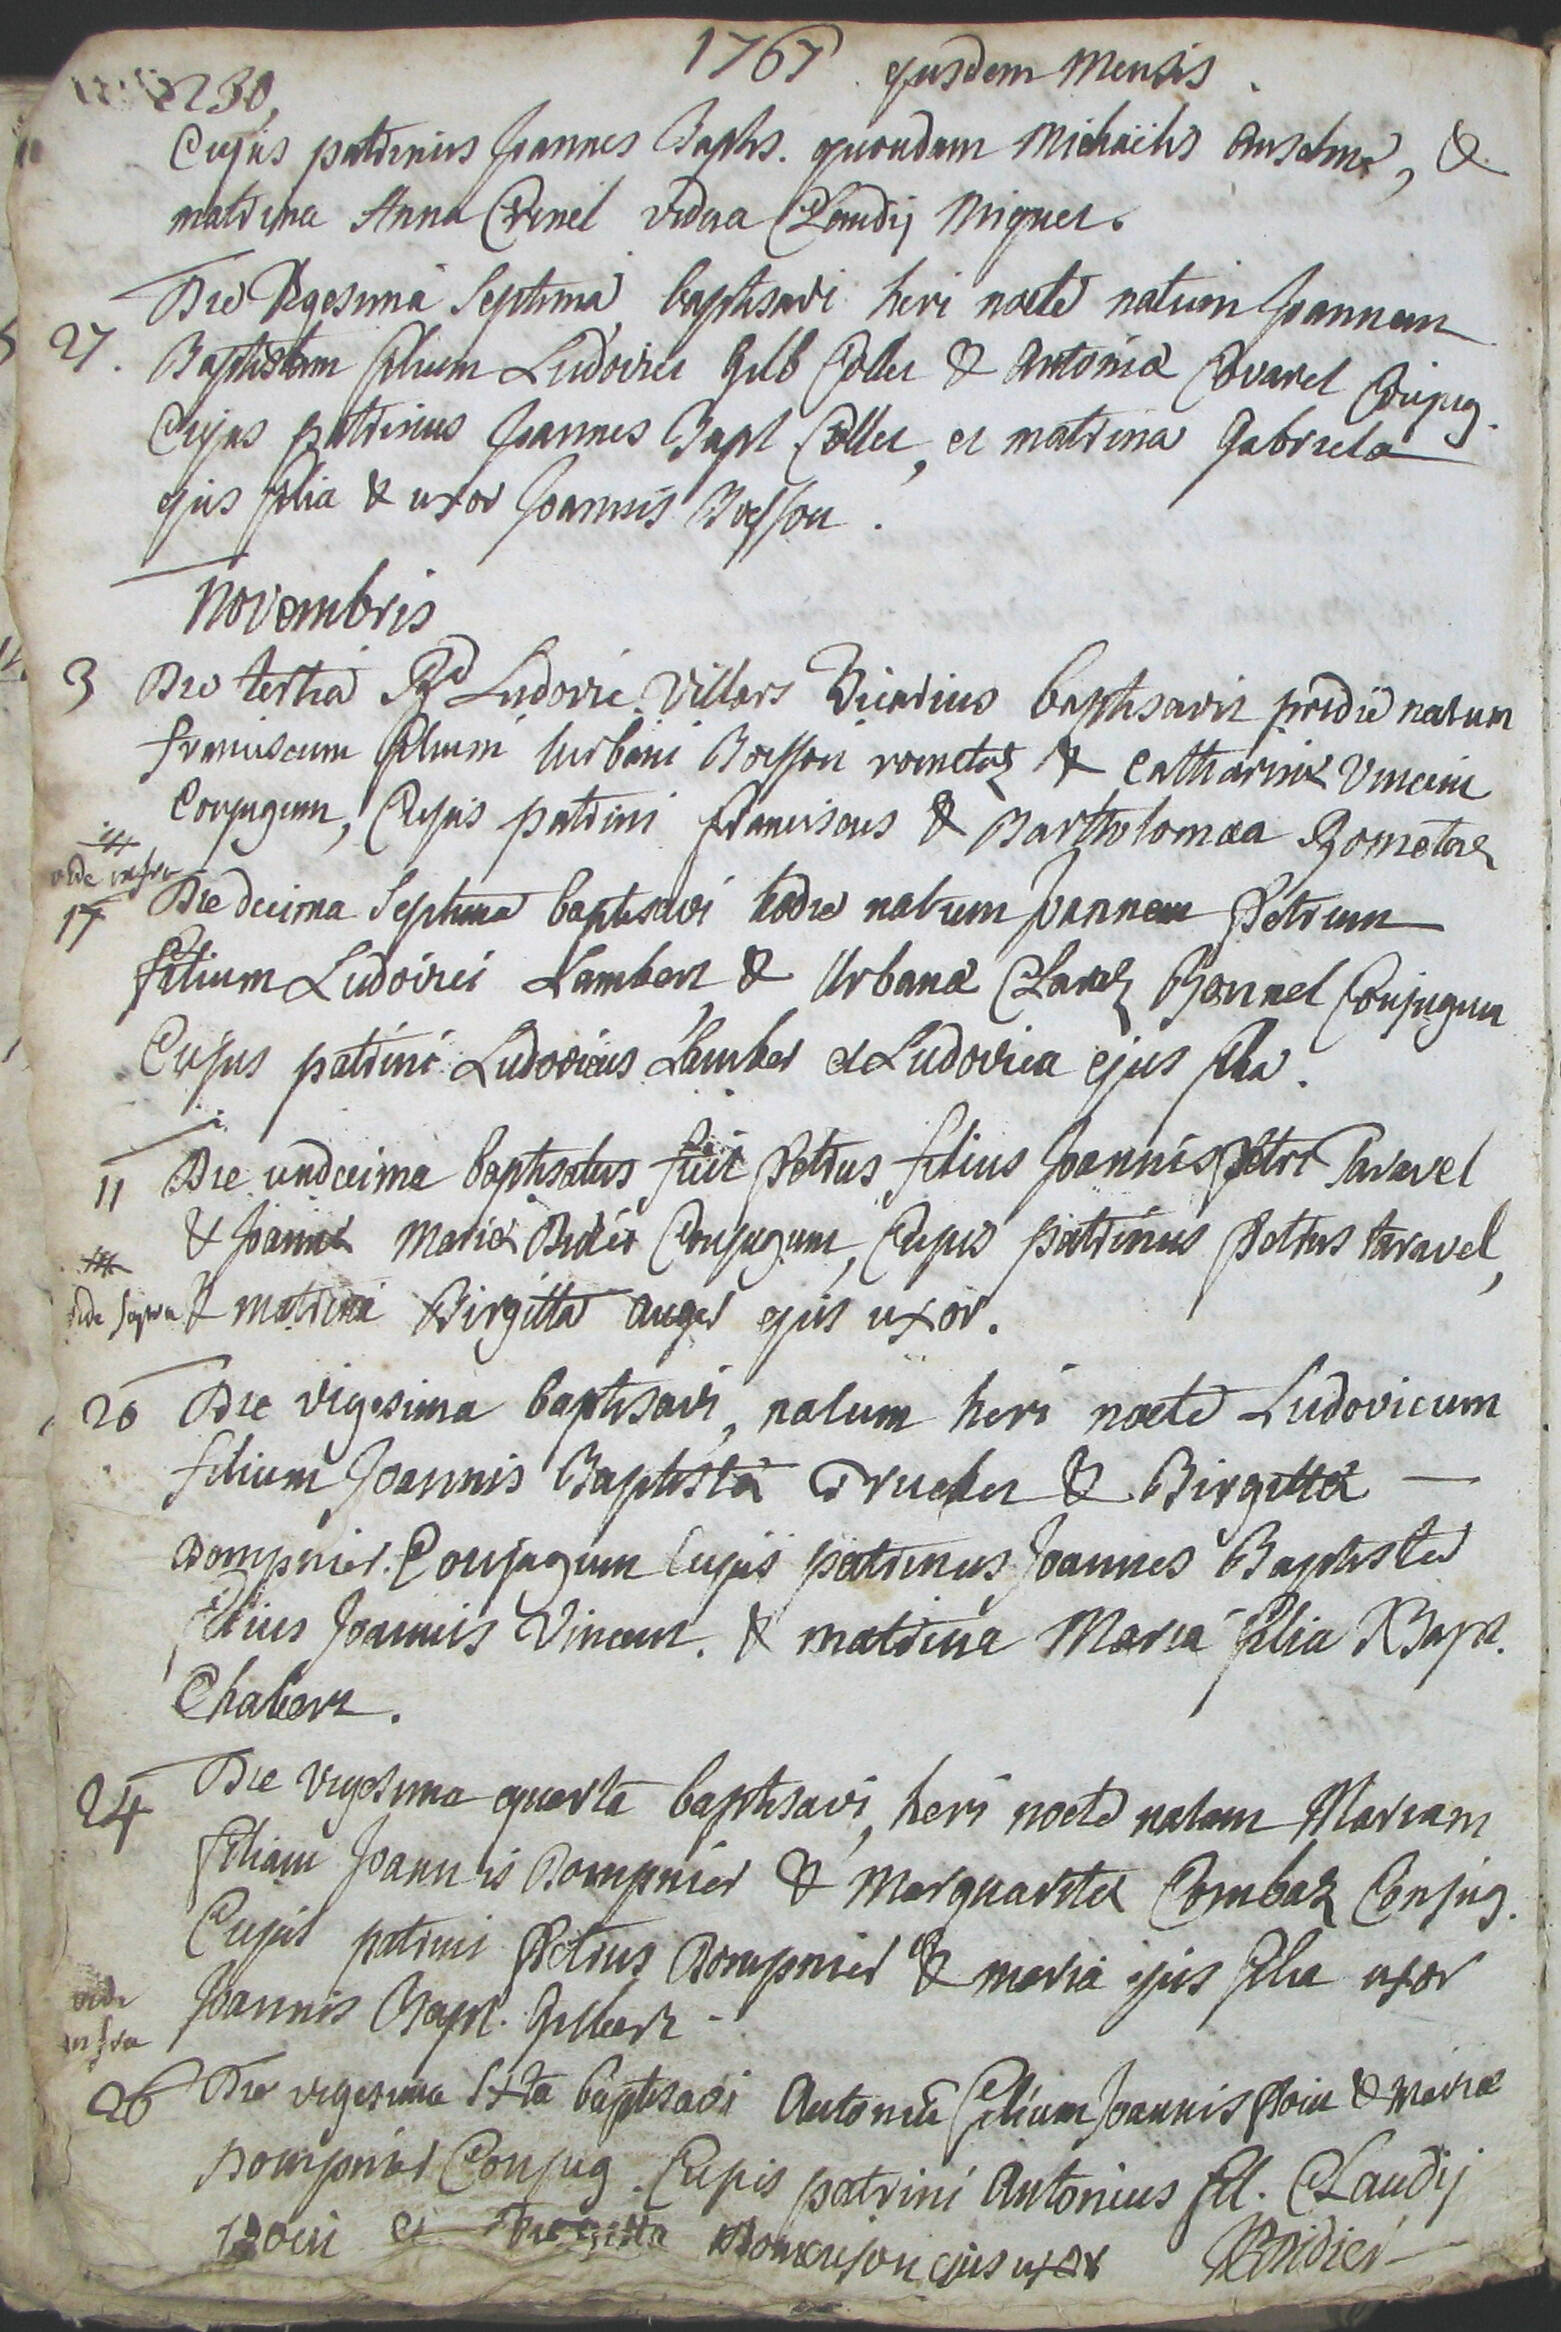 1767 ejusdem Mensis.
230,
Cujus patrinus Joannes Bapts. quondam Michaëlis Anselme, &
matrina Anna Crinel vidua Claudij Miguet.
Die Vigesima Septima baptisavi heri nocte natum Joannem
27. Baptistam filium Ludovici Gilb Collet & Antonia Covarel Conjug.
Cujus patrinus Joannes Bapt Collet, et matrina Gabriela
ejus filia & uxor Joannis Boisson.
Novembris
3 Die tertia Rd Ludovic. Villars Vicarius baptisavit pridie natum
franciscum filium Urbani Boisson rometaz & Catharinæ Vincent
Conjugum, Cujus patrini franciscus & Bartholomæa Rometaz
vide infra
17 Die decima Septima baptisavi hodie natum Joannem Petrum
filium Ludovici Lambert & Urbanæ Claraz Bonnel Conjugum
Cujus patrini Ludovicus Lambert et Ludovica ejus filia.
11 Die undecima baptisatus fuit Petrus filius Joannis Petri Taravel
& Joannæ Mariæ Didier Conjugum, Cujus patrinus Petrus taravel,
vide supra & matrina Birgitta Auger ejus uxor.
20 Die vigesima baptisavi, natum heri nocte Ludovicum
filium Joannis Baptista Truchet & Birgittæ
Dompnier. Conjugum cujus patrinus Joannes Baptista
filius Joannis Vincent. & matrina Maria filia Bapt.
Chabert.
24 Die vigesima quarta baptisavi, heri nocte natam Mariam
filiam Joannis Dompnier & Margaritæ Combaz Conjug.
Cujus patrini Petrus Dompnier & maria ejus filia uxor
vide infra
Joannis Bapt. Gilbert
26 Die vigesima sexta baptisavi Antoniū filium Joannis & Mariæ
Dompnier Conjug. Cujus patrini Antonius fil. Claudij
et ejus uxor Didier